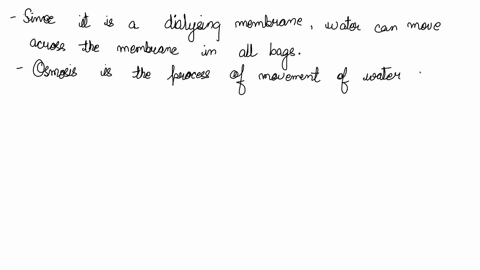 - Since it is a dialysing membrane, water can move
across the membrane in all bags.
- Osmosis is the process of movement of water .